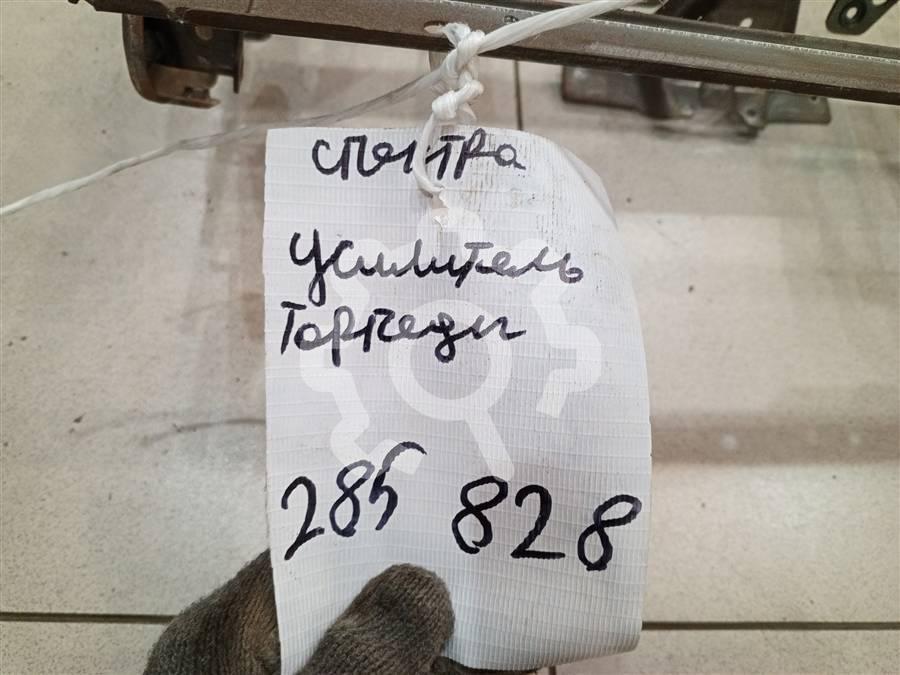 спектра
Усилитель
Торпеды
285 828